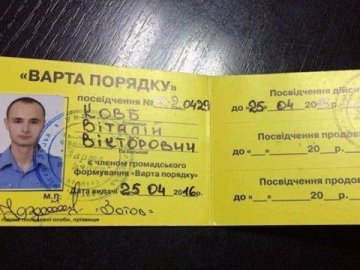 «ВАРТА ПОРЯДКУ»
посвідчення № 0429
КОВБ
ВІТАЛІЙ
ВІКТОРОВИЧ
є членом громадського
формування «Варта порядку»
М.П.
Дата видачі 25 04 2016р.
підпис посадової особи, прізвище
Посвідчення дійсн
до «25» 04 20
Посвідчення продов
до «___»______20___р.
Посвідчення продо
до «___»______20___р.